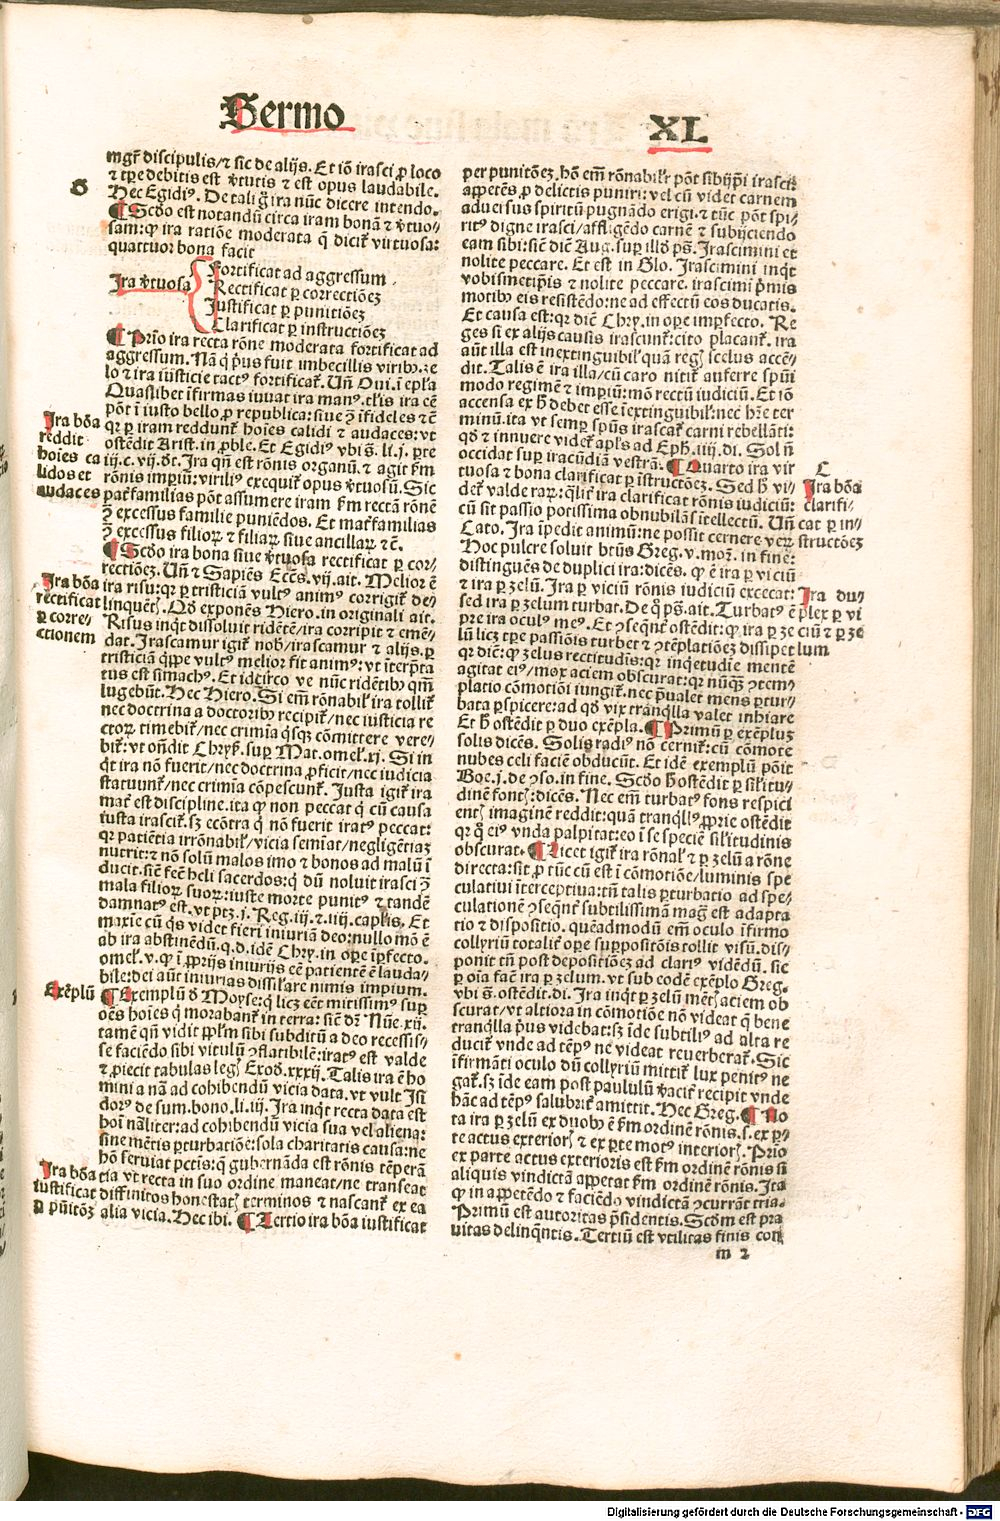 Sermo
XL
mgr̄ discipulis/⁊ sic de alijs. Et iō irasci ꝓ loco
⁊ tꝑe debitis est ꝟtutis ⁊ est opus laudabile.
Hec Egidiꝰ. De tali g̊ ira nūc dicere intendo.
¶ Scdo est notandū circa iram bonā ⁊ ꝟtuo-
sam: ꝙ ira ratiōe moderata q̄ dicit᷑ virtuosa:
quattuor bona facit
Ira ꝟtuosa
Fortificat ad aggressum
Rectificat ꝑ correctiōeꝫ
Justificat ꝑ punitiōeꝫ
Clarificat ꝑ instructiōeꝫ
¶ Prīo ira recta rōne moderata fortificat ad
aggressum. Nā q̇ pꝰus fuit imbecillis viribꝰ ze
lo ⁊ ira iusticie tactꝰ fortificat᷑. Un̄ Oui. ī epl̄a
Quaslibet īfirmas iuuat ira manꝰ. tl̄is ira eē
pōt ī iusto bello ꝓ republica: siue ꝯ̄ īfideles ⁊ c̄
qꝛ ꝑ iram reddunt᷑ hoīes calidi ⁊ audaces: vt
ostēdit Arist. in ꝓble. Et Egidiꝰ vbi s̄. li. j. ꝑte
iij. c. vij. dt̄. Ira qn̄ est rōnis organū. ⁊ agit ẜm
rōnis imꝑiū: virilīꝰ exequit᷑ opus ꝟtuosū. Sic
pat᷑familias pōt assumere iram ẜm rectā rōnē
ꝯ̄ excessus familie puniēdos. Et mat᷑familias
ꝯ̄ excessus filioꝝ ⁊ filiaꝝ siue ancillaꝝ ⁊ c̄.
¶ Scdo ira bona siue ꝟtuosa rectificat ꝑ cor-
rectiōeꝫ. Un̄ ⁊ Sapiēs Eccs̄. vij. ait. Melior ē
ira risu: qꝛ ꝑ tristiciā vultꝰ animꝰ corrigit᷑ de-
linquētꝭ. Qd̄ exponēs Hiero. in originali ait.
Risus inqͥt dissoluit ridētē/ira corripit ⁊ emē-
dat. Irascamur igit᷑ nob̄/irascamur ⁊ alijs. ꝑ
tristiciā qͥppe vultꝰ melior fit animꝰ: vt īterp̄ta
tus est simachꝰ. Et idcirco ve nūc ridētibꝰ qm̄
lugebūt. Hec Hiero. Si em̄ rōnabil᷑ ira tollit᷑
nec doctrina a doctoribꝰ recipit᷑/nec iusticia re
ctoꝝ timebit᷑/nec crimīa qͥsqꝫ cōmittere vere-
bit᷑: vt on̄dit Chryß. suꝑ Mat. omel᷑. xj. Si in
qͥt ira nō fuerit/nec doctrina ꝓficit/nec iudicia
statuunt᷑/nec crimīa cōpescunt᷑. Justa igit᷑ ira
mat᷑ est discipline. ita ꝙ non peccat q̇ cū causa
iusta irascit᷑. sꝫ ecōtra q̇ nō fuerit iratꝰ peccat:
qꝛ patiētia irrōnabil᷑/vicia semīat/negligētiaꝫ
nutrit: ⁊ nō solū malos imo ⁊ bonos ad malū ī
ducit. sic̄ fec̄ heli sacerdos: q̇ dū noluit irasci ꝯ̄
mala filioꝝ suoꝝ: iuste morte punitꝰ ⁊ tandē
damnatꝰ est. vt ptꝫ. j. Reg. iij. ⁊. iiij. capl̄is. Et
maxie cū q̇s videt fieri iniuriā deo: nullo mō ē
ab ira abstinēdū. q. d. idē Chry. in oꝑe īꝑfecto.
omel᷑. v. ꝙ ī ꝓprijs iniurijs eē patientē ē lauda-
bile: dei aūt iniurias dissil̄are nimis impium.
¶ Exemplū d̄ Moyse: q̇ licꝫ eēt mitissimꝰ suꝑ
oēs hoīes q̇ morabant᷑ in terra: sic̄ dr̄ Nūe. xij.
tamē qn̄ vidit ppl̄m sibi subditū a deo recessis-
se faciēdo sibi vitulū ꝯflatibilē: iratꝰ est valde
⁊ ꝓiecit tabulas legꝭ Exod̄. xxxij. Talis ira ē ho
mini a nā ad cohibendū vicia data. vt vult Isi
dorꝰ de sum. bono. li. iij. Ira inqͥt recta data est
hoī nāliter: ad cohibendū vicia sua vel aliena:
sine mētis ꝑturbatiōe: sola charitatis causa: ne
hō feruiat pctīs: q̇ gubernāda est rōnis tēperā
tia vt recta in suo ordine maneat/ne transeat
diffinitos honestatꝭ terminos ⁊ nascant᷑ ex ea
alia vicia. Hec ibi. ¶ Tertio ira bōa iustificat
G
Ira bōa
reddit
hoīes ca
lidos et
audaces
Ira bōa
rectificat
ꝑ corre-
ctionem
Exēplū
Ira bōa
iustificat
ꝑ pūitōꝫ
per punitōeꝫ. hō em̄ rōnabil᷑r pōt sibijp̄i irasci:
appetēs ꝓ delictis puniri: vel cū videt carnem
aduersus spiritū pugnādo erigi. ⁊ tūc pōt spi-
ritꝰ digne irasci/affligēdo carnē ⁊ subijciendo
eam sibi: sic̄ dic̄ Aug. suꝑ illd̄ ps̄. Irascimini et
nolite peccare. Et est in Glo. Irascimini inqͥt
vobismetip̄is ⁊ nolite peccare. irascimī pͥmis
motibꝰ eis resistēdo: ne ad effectū eos ducatis.
Et causa est: qꝛ dic̄ Chry. in oꝑe imꝑfecto. Re
ges si ex alijs causis irascunt᷑: cito placant᷑. ira
aūt illa est inextinguibil᷑ quā regꝭ scelus accē-
dit. Talis ē ira illa/cū caro nitit᷑ auferre spūi
modo regimē ⁊ imꝑiū: mōn rectū iudiciū. Et iō
accensa ex h̄ debet esse īextinguibil᷑: nec hr̄e ter
minū. ita vt semꝑ spūs irascat᷑ carni rebellāti:
qd̄ ⁊ innuere videt᷑ apl̄s ad Eph. iiij. di. Sol nō
occidat suꝑ iracūdiā vestrā. ¶ Quarto ira vir
tuosa ⁊ bona clarificat ꝑ īstructōeꝫ. Sed h̄ vi-
det᷑ valde raꝝ: qlit᷑ ira clarificat rōnis iudiciū:
cū sit passio potissima obnubilās ītellectū. Un̄
Cato. Ira īpedit animū: ne possit cernere veꝝ
Hoc pulcre soluit btūs Greg. v. moꝝ. in fine:
distinguēs de duplici ira: dicēs. ꝙ ē ira ꝑ viciū
⁊ ira ꝑ zelū. Ira ꝑ viciū rōnis iudiciū excecat:
sed ira ꝑ zelum turbat. De q̄ ps̄. ait. Turbatꝰ ē
p̄re ira oculꝰ meꝰ. Et ꝯseqn̄t᷑ ostēdit: ꝙ ira ꝑ ze
lū licꝫ tꝑe passiōis turbet ⁊ ꝯtēplatiōeꝫ dissipet
qꝛ dic̄: ꝙ zelus rectitudīs: qꝛ inqͥetudīe mentē
agitat eiꝰ/mox aciem obscurat: qꝛ nūqͣꝫ ꝯtem-
platio cōmotiōi iungit᷑. nec p̄ualet mens ꝑtur-
bata ꝑspicere: ad qd̄ vix tranq̇lla valet inhiare
Et h̄ ostēdit ꝑ duo exēpla. ¶ Primū ꝑ exēpluꝫ
solis dicēs. Solis radiꝰ nō cernit᷑: cū cōmote
nubes celi faciē obducūt. Et idē exemplū pōit
Boe. j. de ꝯso. in fine. Scdo h̄ ostēdit ꝑ sil᷑itu-
dinē fontꝭ: dicēs. Nec em̄ turbatꝰ fons respici
entꝭ imaginē reddit: quā tranq̇llꝰ ꝓprie ostēdit
qꝛ q̄ eiꝰ vnda palpitat: eo ī se speciē sil᷑itudinis
obscurat. ¶ Licet igit᷑ ira rōnal᷑ ⁊ ꝑ zelū a rōne
directa: sit ꝓ tūc cū est ī cōmotiōe/luminis spe
culatiui īterceptiua: tn̄ talis ꝑturbatio ad spe-
culationē ꝯseqn̄t᷑ subtilissimā mag̃ est adapta
tio ⁊ dispositio. quēadmodū em̄ oculo īfirmo
collyriū totalit᷑ oꝑe suppositōis tollit visū. dis-
ponit tn̄ post depositiōeꝫ ad clariꝰ vidēdū. sic
ꝑ oīa fac̄ ira ꝑ zelum. vt sub eodē exēplo Greg.
vbi s̄. ostēdit. di. Ira inqͥt ꝑ zelū mētꝭ aciem ob
scurat/vt altiora in cōmotiōe nō videat q̄ bene
tranq̇lla pͥus videbat: sꝫ īde subtiliꝰ ad alta re
ducit᷑ vnde ad tēpꝰ ne videat reuerberat᷑. Sic
īfirmāti oculo dū collyriū mittit᷑ lux penitꝰ ne
gat᷑. sꝫ īde eam post paululū ꝟacit᷑ recipit vnde
hāc ad tēpꝰ salubrit᷑ amittit. Hec Greg. ¶ No
ta ira ꝑ zelū ex duobꝰ ē ẜm ordinē rōnis. s. ex ꝑ-
te actus exteriorꝭ ⁊ ex ꝑte motꝰ interiorꝭ. Prīo
ex parte actus exterioris est ẜm ordinē rōnis si
aliquis vindictā appetat ẜm ordinē rōnis. Ita
ꝙ in appetēdo ⁊ faciēdo vindictā ꝯcurrāt tria.
Primū est autoritas p̄sidentis. Scdm est pra
uitas delinq̄ntis. Tertiū est vtilitas finis con
C
Ira bōa
clarifi-
cat ꝑ in-
structōeꝫ
Ira du-
plex ꝑ vi
ciū ⁊ ꝑ ze
lum
m 2
Digitalisierung gefördert durch die Deutsche Forschungsgemeinschaft - DFG